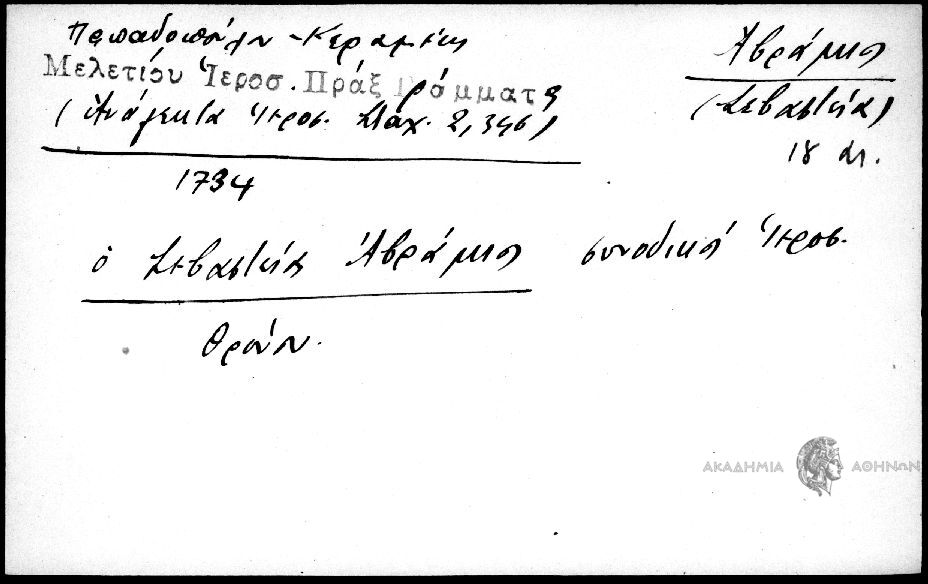 Παπαδοπούλου-Κεραμέως
Μελετίου Ἱεροσ. Πράξ Γράμματα
(Ἀνάλεκτα Ἱεροσ. Σταχ. 2, 346)
Ἀβράμιος
(Σεβαστείας)
18 αι.
1734
ὁ Σεβαστείας Ἀβράμιος συνοδικοῦ Ἱεροσ.
θρόνου.
ΑΚΑΔΗΜΙΑ ΑΘΗΝΩΝ